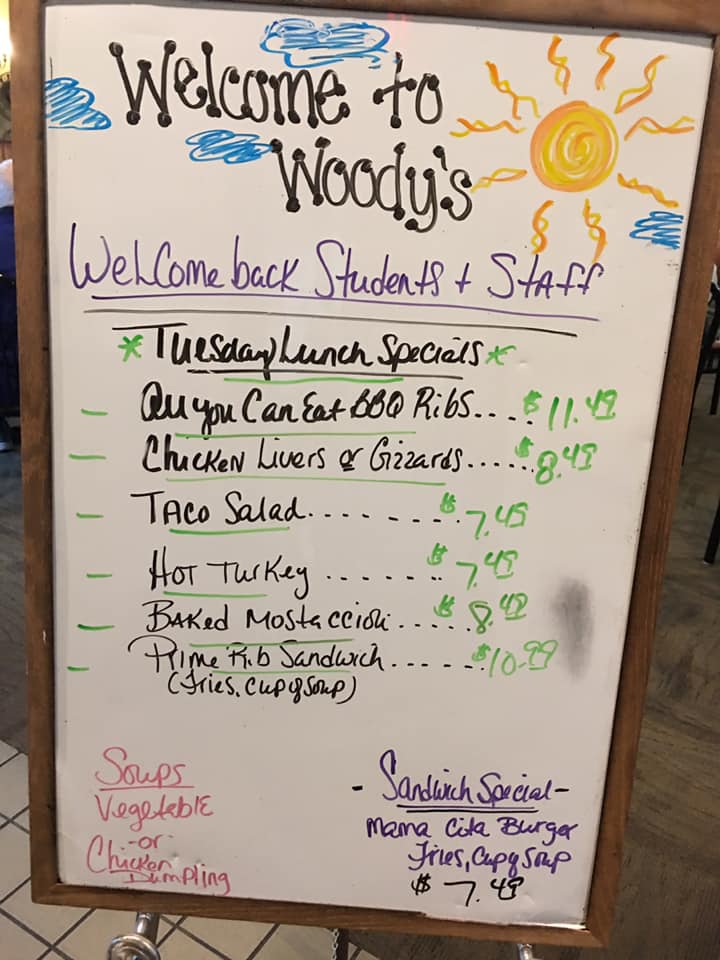 Welcome to
Woody's
Welcome back Students + Staff
* Tuesday Lunch Specials *
- All you Can Eat BBQ Ribs.... $11.49
- Chicken Livers or Gizzards...... $8.49
- Taco Salad......... $7.49
- Hot Turkey ....... $7.49
- Baked Mostaccioli...... $8.49
- Prime Rib Sandwich....... $10.99
(Fries, Cup of Soup)
Soups
Vegetable
-or-
Chicken
Dumpling
- Sandwich Special -
Mama Cita Burger
Fries, Cup of Soup
$7.49